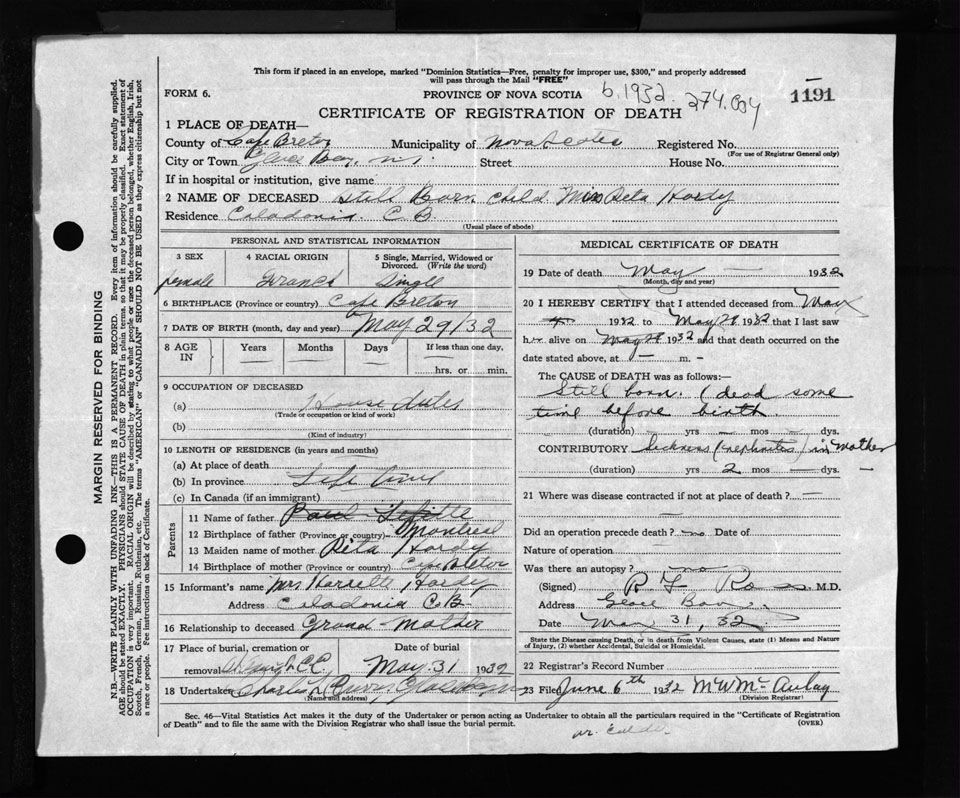 This form if placed in an envelope, marked "Dominion Statistics—Free, penalty for improper use, $300," and properly addressed
will pass through the Mail "FREE"
FORM 6.
PROVINCE OF NOVA SCOTIA
b. 1932.
274.004
1191
CERTIFICATE OF REGISTRATION OF DEATH
1 PLACE OF DEATH—
County of Cape Breton Municipality of Nova Scotia Registered No.
(For use of Registrar General only)
City or Town Glace Bay, N.S. Street House No.
If in hospital or institution, give name
2 NAME OF DECEASED Still Born child Miss Reta Hardy
Residence Caladonia C B.
(Usual place of abode)
PERSONAL AND STATISTICAL INFORMATION
3 SEX 4 RACIAL ORIGIN 5 Single, Married, Widowed or Divorced. (Write the word)
female French Single
6 BIRTHPLACE (Province or country) Cape Breton
7 DATE OF BIRTH (month, day and year) May 29/32
8 AGE IN Years Months Days If less than one day, hrs. or min.
9 OCCUPATION OF DECEASED
(a) House duties
(Trade or occupation or kind of work)
(b)
(Kind of industry)
10 LENGTH OF RESIDENCE (in years and months)
(a) At place of death
(b) In province Life time
(c) In Canada (if an immigrant)
Parents
11 Name of father
12 Birthplace of father (Province or country) Montreal
13 Maiden name of mother Rita Hardy
14 Birthplace of mother (Province or country) Cape Breton
15 Informant's name Mrs Harrette Hardy
Address Caladonia C.B.
16 Relationship to deceased Grand-Mother
17 Place of burial, cremation or removal Date of burial
May 31 1932
18 Undertaker
(Name and address)
MEDICAL CERTIFICATE OF DEATH
19 Date of death May — 1932
(Month, day and year)
20 I HEREBY CERTIFY that I attended deceased from May
1932 to May 29 1932 that I last saw
her alive on May 29 1932 and that death occurred on the
date stated above, at — m. –
The CAUSE of DEATH was as follows:—
Still born. (dead some
time before birth.
(duration) – yrs – mos – dys.
CONTRIBUTORY Sickness (nephrites) in Mother
(duration) – yrs 2 mos – dys. –
21 Where was disease contracted if not at place of death? —
Did an operation precede death? no Date of
Nature of operation
Was there an autopsy? no
(Signed) R F Ross M.D.
Address Glace Bay
Date May 31, 32
State the Disease causing Death, or in death from Violent Causes, state (1) Means and Nature
of Injury, (2) whether Accidental, Suicidal or Homicidal.
22 Registrar's Record Number
23 File June 6th 1932 M W McAulay
(Division Registrar)
Sec. 46—Vital Statistics Act makes it the duty of the Undertaker or person acting as Undertaker to obtain all the particulars required in the "Certificate of Registration
of Death" and to file the same with the Division Registrar who shall issue the burial permit.
(OVER)
MARGIN RESERVED FOR BINDING
N.B.—WRITE PLAINLY WITH UNFADING INK—THIS IS A PERMANENT RECORD. Every item of information should be carefully supplied.
AGE should be stated EXACTLY. PHYSICIANS should STATE CAUSE OF DEATH in plain terms, so that it may be properly classified. Exact statement of
OCCUPATION is very important. RACIAL ORIGIN will be described by stating to what people or race the deceased person belonged, whether English, Irish,
Scotch, French, German, Russian, Ruthenian, etc. The terms "AMERICAN" or "CANADIAN" SHOULD NOT BE USED as they express citizenship but not
a race or people. Fee instructions on back of Certificate.